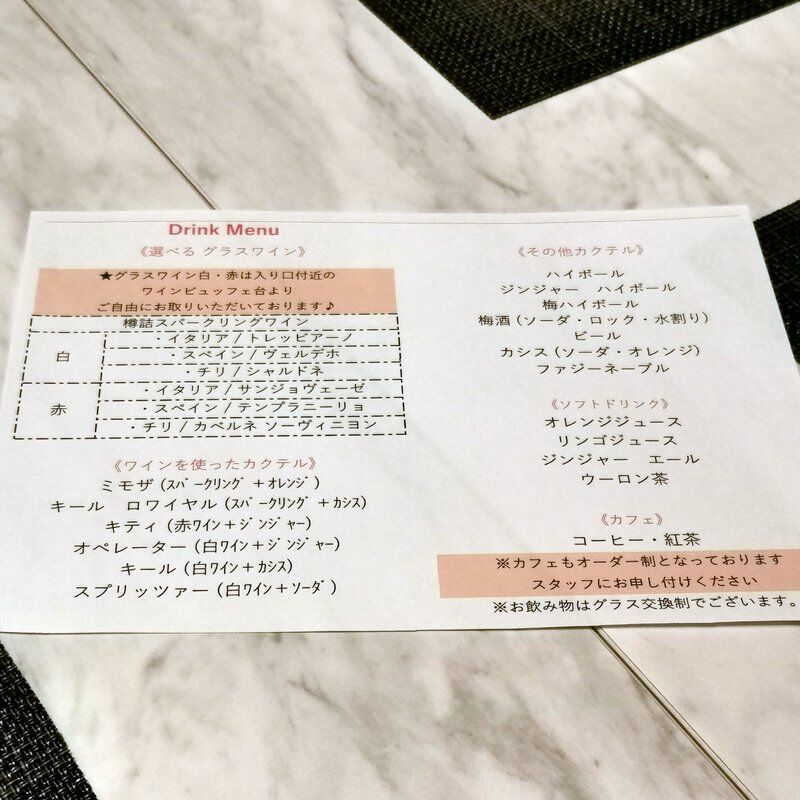 Drink Menu
《選べる グラスワイン》
★グラスワイン白・赤は入り口付近の
ワインビュッフェ台より
ご自由にお取りいただいております♪
樽詰スパークリングワイン
白
・イタリア/トレッビアーノ
・スペイン/ヴェルデホ
・チリ/シャルドネ
赤
・イタリア/サンジョヴェーゼ
・スペイン/テンプラニーリョ
・チリ/カベルネ ソーヴィニヨン
《ワインを使ったカクテル》
ミモザ (ｽﾊﾟｰｸﾘﾝｸﾞ+ｵﾚﾝｼﾞ)
キール　ロワイヤル (ｽﾊﾟｰｸﾘﾝｸﾞ+ｶｼｽ)
キティ (赤ﾜｲﾝ+ｼﾞﾝｼﾞｬｰ)
オペレーター (白ﾜｲﾝ+ｼﾞﾝｼﾞｬｰ)
キール (白ﾜｲﾝ+ｶｼｽ)
スプリッツァー (白ﾜｲﾝ+ｿｰﾀﾞ)
《その他カクテル》
ハイボール
ジンジャー　ハイボール
梅ハイボール
梅酒 (ソーダ・ロック・水割り)
ビール
カシス (ソーダ・オレンジ)
ファジーネーブル
《ソフトドリンク》
オレンジジュース
リンゴジュース
ジンジャー　エール
ウーロン茶
《カフェ》
コーヒー・紅茶
※カフェもオーダー制となっております
スタッフにお申し付けください
※お飲み物はグラス交換制でございます。